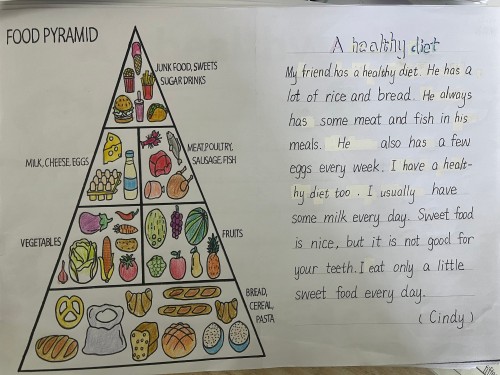 FOOD PYRAMID
JUNK FOOD, SWEETS
SUGAR DRINKS
MILK, CHEESE, EGGS
MEAT, POULTRY,
SAUSAGE, FISH
VEGETABLES
FRUITS
BREAD,
CEREAL,
PASTA
A healthy diet
My friend has a healshy diet. He has a
lot of rice and bread. He always
has some meat and fish in his
meals. He also has a few
eggs every week. I have a healt-
hy diet too. I usually have
some milk every day. Sweet food
is nice, but it is not good for
your teeth. I eat only a little
sweet food every day.
(Cindy)